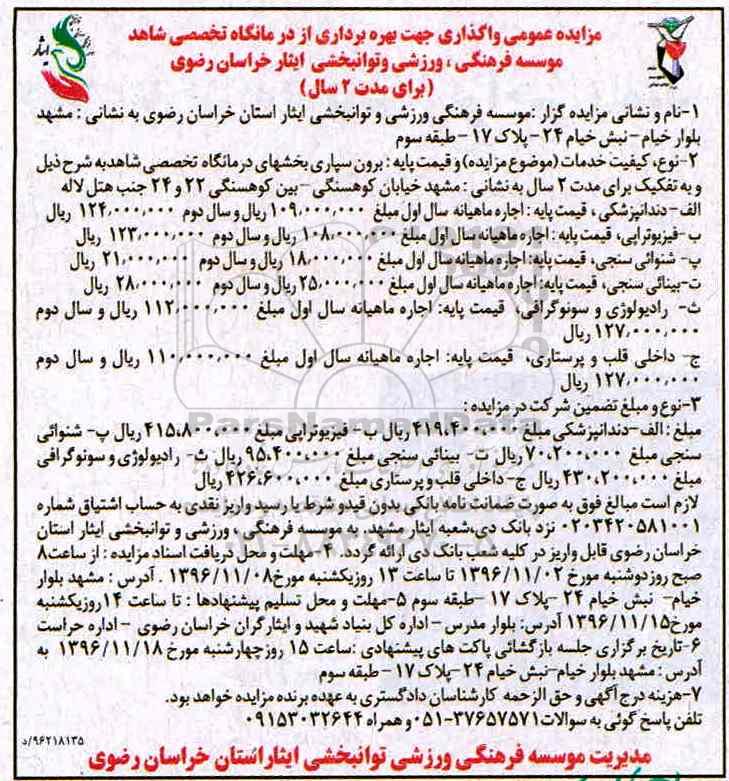 مزایده عمومی واگذاری جهت بهره برداری از درمانگاه تخصصی شاهد
موسسه فرهنگی ، ورزشی وتوانبخشی ایثار خراسان رضوی
(برای مدت ۲ سال)
ایثار
۱-نام و نشانی مزایده گزار :موسسه فرهنگی ورزشی و توانبخشی ایثار استان خراسان رضوی به نشانی : مشهد
بلوار خیام-نبش خیام ۲۴ - پلاک ۱۷ -طبقه سوم
۲-نوع، کیفیت خدمات (موضوع مزایده) و قیمت پایه : برون سپاری بخشهای درمانگاه تخصصی شاهدبه شرح ذیل
و به تفکیک برای مدت ۲ سال به نشانی : مشهد خیابان کوهسنگی -بین کوهسنگی ۲۲ و ۲۴ جنب هتل لاله
الف-دندانپزشکی ، قیمت پایه : اجاره ماهیانه سال اول مبلغ ۱۰۹،۰۰۰،۰۰۰ ریال و سال دوم ۱۲۴،۰۰۰،۰۰۰ ریال
ب-فیزیوتراپی، قیمت پایه : اجاره ماهیانه سال اول مبلغ ۱۰۸،۰۰۰،۰۰۰ ریال و سال دوم ۱۲۳،۰۰۰،۰۰۰ ریال
پ- شنوائی سنجی، قیمت پایه: اجاره ماهیانه سال اول مبلغ ۱۸،۰۰۰،۰۰۰ ریال و سال دوم ۲۱،۰۰۰،۰۰۰ ریال
ت-بینائی سنجی، قیمت پایه: اجاره ماهیانه سال اول مبلغ ۲۵،۰۰۰،۰۰۰ ریال و سال دوم ۲۸،۰۰۰،۰۰۰ ریال
ث- رادیولوژی و سونوگرافی، قیمت پایه: اجاره ماهیانه سال اول مبلغ ۱۱۲،۰۰۰،۰۰۰ ریال و سال دوم
۱۲۷،۰۰۰،۰۰۰ ریال
ج- داخلی قلب و پرستاری، قیمت پایه: اجاره ماهیانه سال اول مبلغ ۱۱۰،۰۰۰،۰۰۰ ریال و سال دوم
۱۲۷،۰۰۰،۰۰۰ ریال
۳-نوع و مبلغ تضمین شرکت در مزایده :
مبلغ : الف-دندانپزشکی مبلغ ۴۱۹،۴۰۰،۰۰۰ ریال ب- فیزیوتراپی مبلغ ۴۱۵،۸۰۰،۰۰۰ ریال پ- شنوائی
سنجی مبلغ ۷۰،۲۰۰،۰۰۰ ریال ت- بینائی سنجی مبلغ ۹۵،۴۰۰،۰۰۰ ریال ث- رادیولوژی و سونوگرافی
مبلغ ۴۳۰،۲۰۰،۰۰۰ ریال ج-داخلی قلب و پرستاری مبلغ ۴۲۶،۶۰۰،۰۰۰ ریال
لازم است مبالغ فوق به صورت ضمانت نامه بانکی بدون قیدو شرط یا رسید واریز نقدی به حساب اشتیاق شماره
۰۲۰۳۴۲۰۵۸۱۰۰۱ نزد بانک دی،شعبه ایثار مشهد، به موسسه فرهنگی ، ورزشی و توانبخشی ایثار استان
خراسان رضوی قابل واریز در کلیه شعب بانک دی ارائه گردد. ۴-مهلت و محل دریافت اسناد مزایده : از ساعت۸
صبح روز دوشنبه مورخ ۱۳۹۶/۱۱/۰۲ تا ساعت ۱۳ روزیکشنبه مورخ۱۳۹۶/۱۱/۰۸ . آدرس : مشهد بلوار
خیام- نبش خیام ۲۴ -پلاک ۱۷ -طبقه سوم ۵-مهلت و محل تسلیم پیشنهادها : تا ساعت ۱۴روزیکشنبه
مورخ۱۳۹۶/۱۱/۱۵ آدرس: بلوار مدرس - اداره کل بنیاد شهید و ایثارگران خراسان رضوی - اداره حراست
۶-تاریخ برگزاری جلسه بازگشائی پاکت های پیشنهادی :ساعت ۱۵ روزچهارشنبه مورخ ۱۳۹۶/۱۱/۱۸ به
آدرس : مشهد بلوار خیام-نبش خیام ۲۴ -پلاک ۱۷ - طبقه سوم
۷-هزینه درج آگهی و حق الزحمه کارشناسان دادگستری به عهده برنده مزایده خواهد بود.
تلفن پاسخ گوئی به سوالات ۳۷۶۵۷۵۷۱-۰۵۱ و همراه ۰۹۱۵۳۰۳۲۶۴۴
۹۶۲۱۸۱۳۵/د
مدیریت موسسه فرهنگی ورزشی توانبخشی ایثار استان خراسان رضوی
ParsNamadData